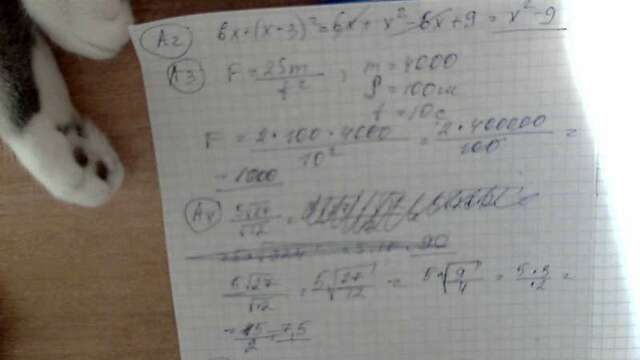 A2 6x+(x-3)²=6x+x²-6x+9=x²-9
A3 F=2Sm/t² ; m=4000
S=100м
t=10с
F=2·100·4000/10²=2·400000/100=
=1000
A4 5√27/√12=
90
5√27/√12=5√27/√12=5√9/4=5·3/2=
=15/2=7,5